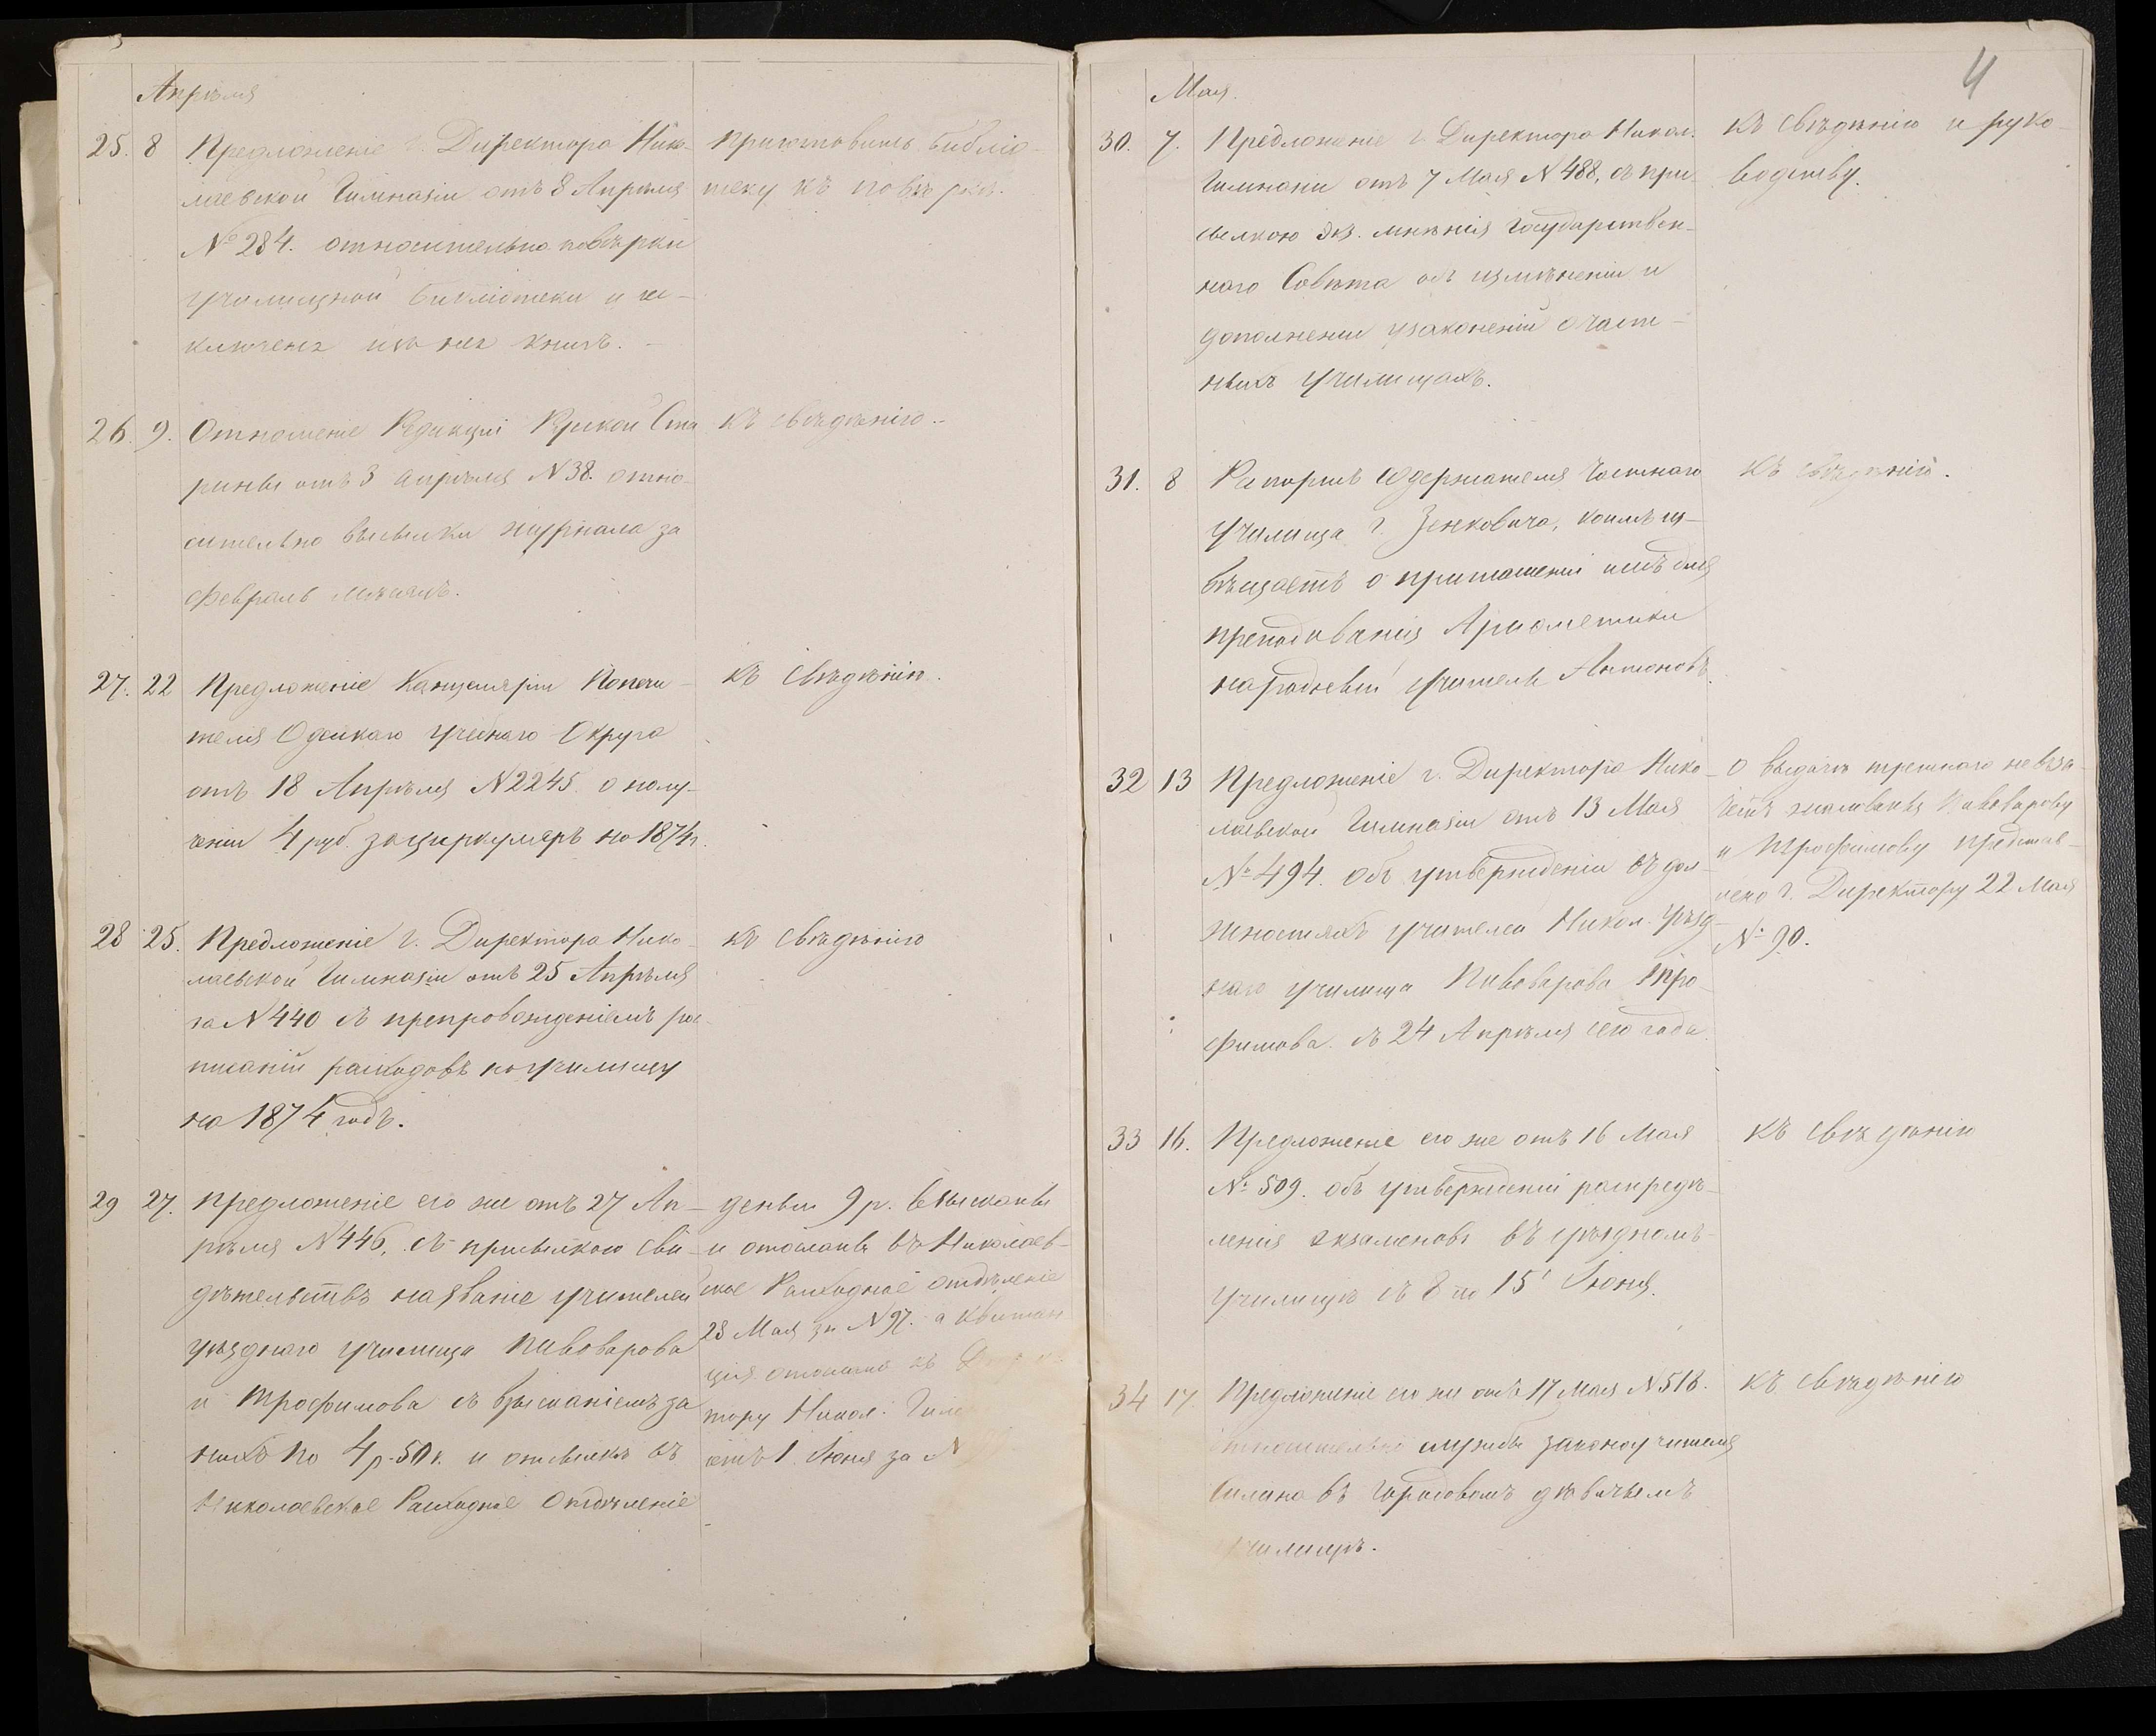 Апрѣля
25. 8 Предложеніе г. Директора Нико-
лаевской Гимназіи отъ 8 Апрѣля
№ 284. относительно повѣрки
училищной библіотеки и ис-
ключенія изъ нея книгъ. –
Приготовить библіо-
теку къ повѣркѣ.
26. 9. Отношеніе Редакціи Русской Ста
рины отъ 3 апрѣля № 38. отно-
сительно высылки журнала за
Февраль мѣсяцъ.
Къ свѣдѣнію.
27. 22 Предложеніе Канцеляріи Попечи-
теля Одесскаго Учебнаго Округа
отъ 18 Апрѣля № 2245 о полу-
ченіи 4 руб. за циркуляръ на 1874 г.
Къ свѣдѣнію.
28 25. Предложеніе г. Директора Нико-
лаевской Гимназіи отъ 25 Апрѣля
за № 440 съ препровожденіемъ рос-
писаній расходовъ по училищу
на 1874 годъ.
къ свѣдѣнію
29 27. Предложеніе его же отъ 27 Ап-
рѣля № 446, съ присылкою сви-
дѣтельствъ на званіе учителей
уѣзднаго училища Пивоварова
и Трофимова съ взысканіемъ за
нихъ по 4 р. 50 к. и отсылкѣ въ
Николаевское Расходное Отдѣленіе
деньги 9 р. взысканы
и отосланы въ Николаев-
ское Расходное отдѣленіе
28 Мая за № 97. а квитан
ція отослана къ
тору Никол. Гим
отъ 1 Июня за №
4
Мая.
30. 7. Предложеніе г. Директора Никол.
Гимназіи отъ 7 Мая № 488, съ при-
сылкою экз. мнѣнія Государствен-
наго Совѣта объ измѣненіи и
дополненіи узаконеній о част-
ныхъ училищахъ.
Къ свѣдѣнію и руко-
водству.
31. 8 Рапортъ содержателя частнаго
училища г. Зенковича, коимъ из-
вѣщаетъ о приглашеніи имъ для
преподаванія Ариѳметики
народный учитель Антоновъ.
Къ свѣдѣнію.
32 13 Предложеніе г. Директора Нико-
лаевской Гимназіи отъ 13 Мая
№ 494. объ утвержденіи въ дол-
жностяхъ учителей Никол. уѣзд-
наго училища Пивоварова Тро-
фимова съ 24 Апрѣля сего года.
О выдачѣ третнаго невъза-
четъ жалованья Пивоварову
и Трофимову представ-
лено г. Директору 22 Мая
№ 90.
33 16. Предложеніе его же отъ 16 Мая
№ 509. объ утвержденіи распредѣ-
ленія экзаменовъ въ уѣздномъ
училищѣ съ 8 по 15 Іюня.
Къ свѣдѣнію
34 17. Предложеніе его же отъ 17 Мая № 518.
относительно службы законоучителя
въ Городовомъ дѣвичьемъ
училищѣ.
Къ свѣдѣнію